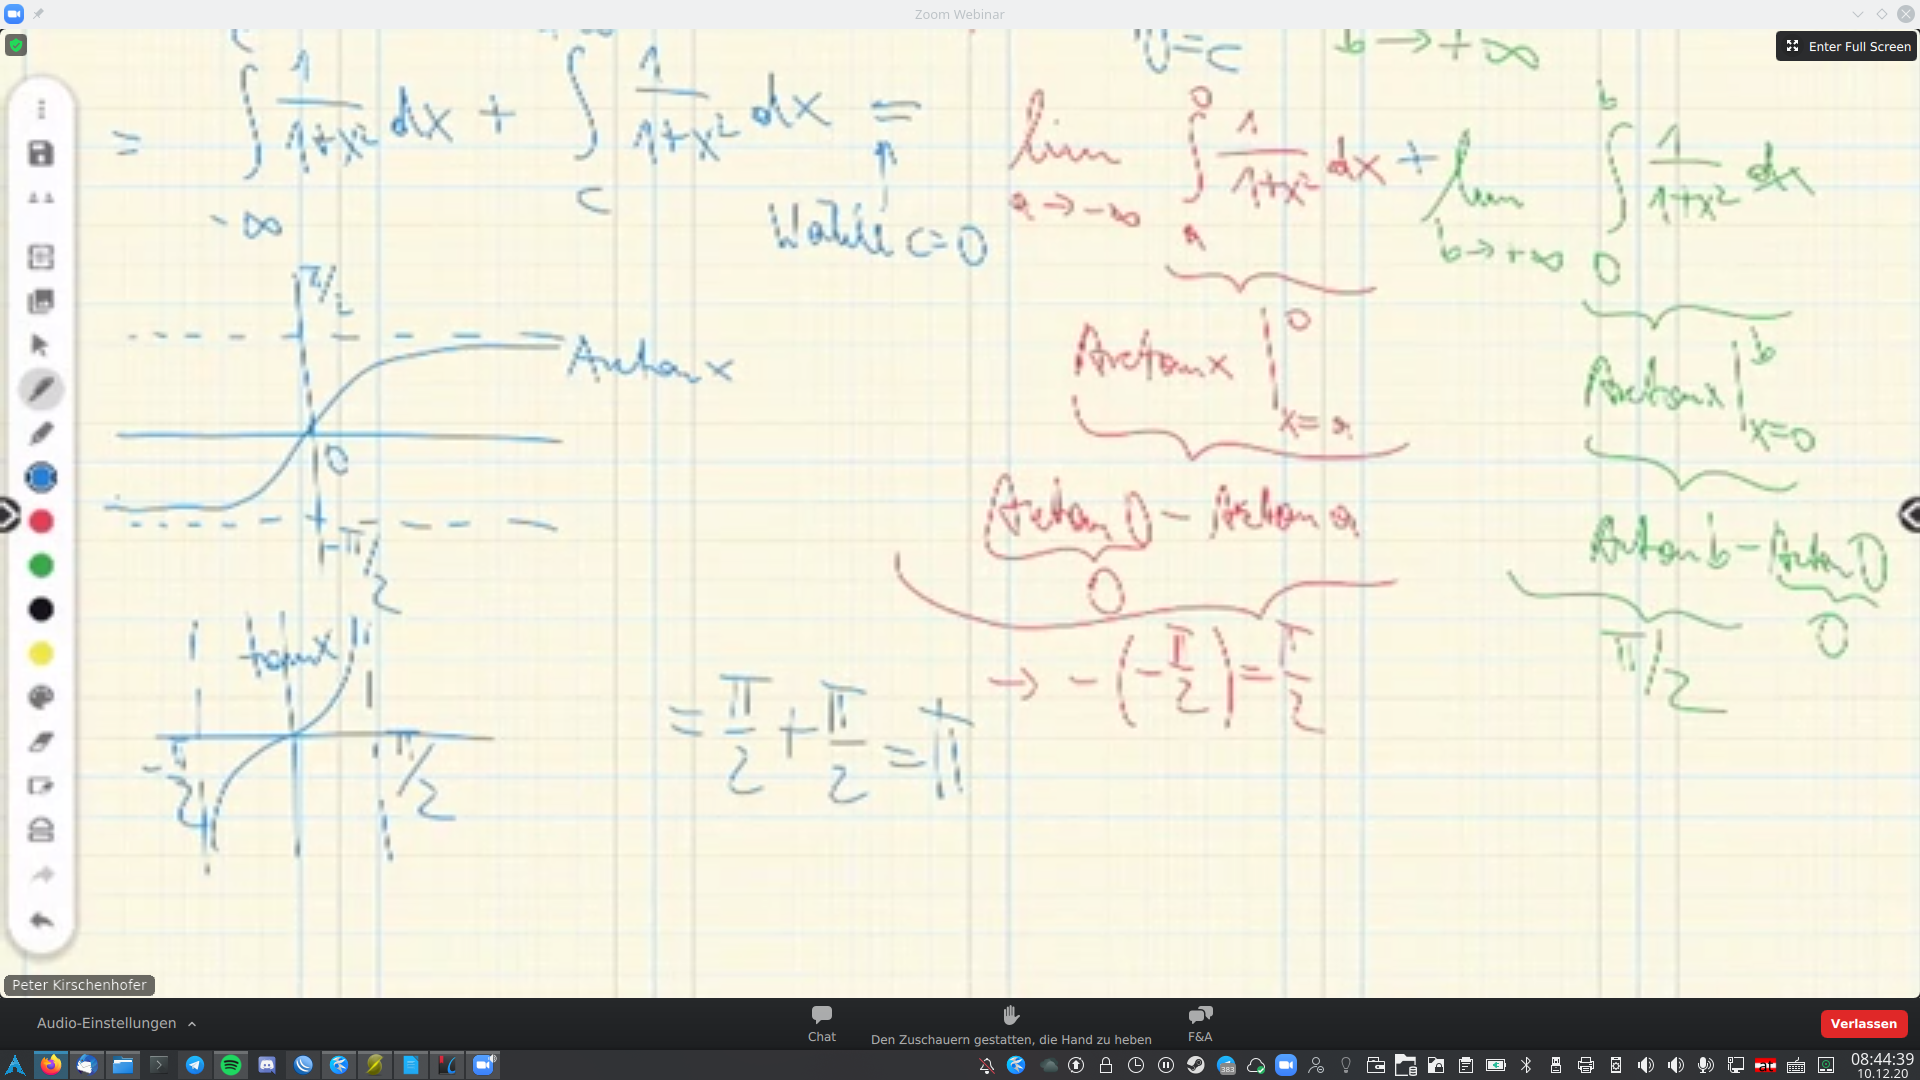 Zoom Webinar
Enter Full Screen
= ∫ 1/(1+x²) dx + ∫ 1/(1+x²) dx =
-∞
c
Wähle c=0
b → +∞
lim a → -∞ ∫ 0 a 1/(1+x²) dx + lim b → +∞ ∫ b 0 1/(1+x²) dx
π/2
Arctan x
0
-π/2
Arctan x | 0 x=a
Arctan x | b x=0
Arctan 0 - Arctan a
0
Arctan b - Arctan 0
0
→ -(-π/2) = π/2
π/2
tan x
-π/2
π/2
= π/2 + π/2 = π
Peter Kirschenhofer
Audio-Einstellungen
Chat
Den Zuschauern gestatten, die Hand zu heben
F&A
Verlassen
383
08:44:39
10.12.20